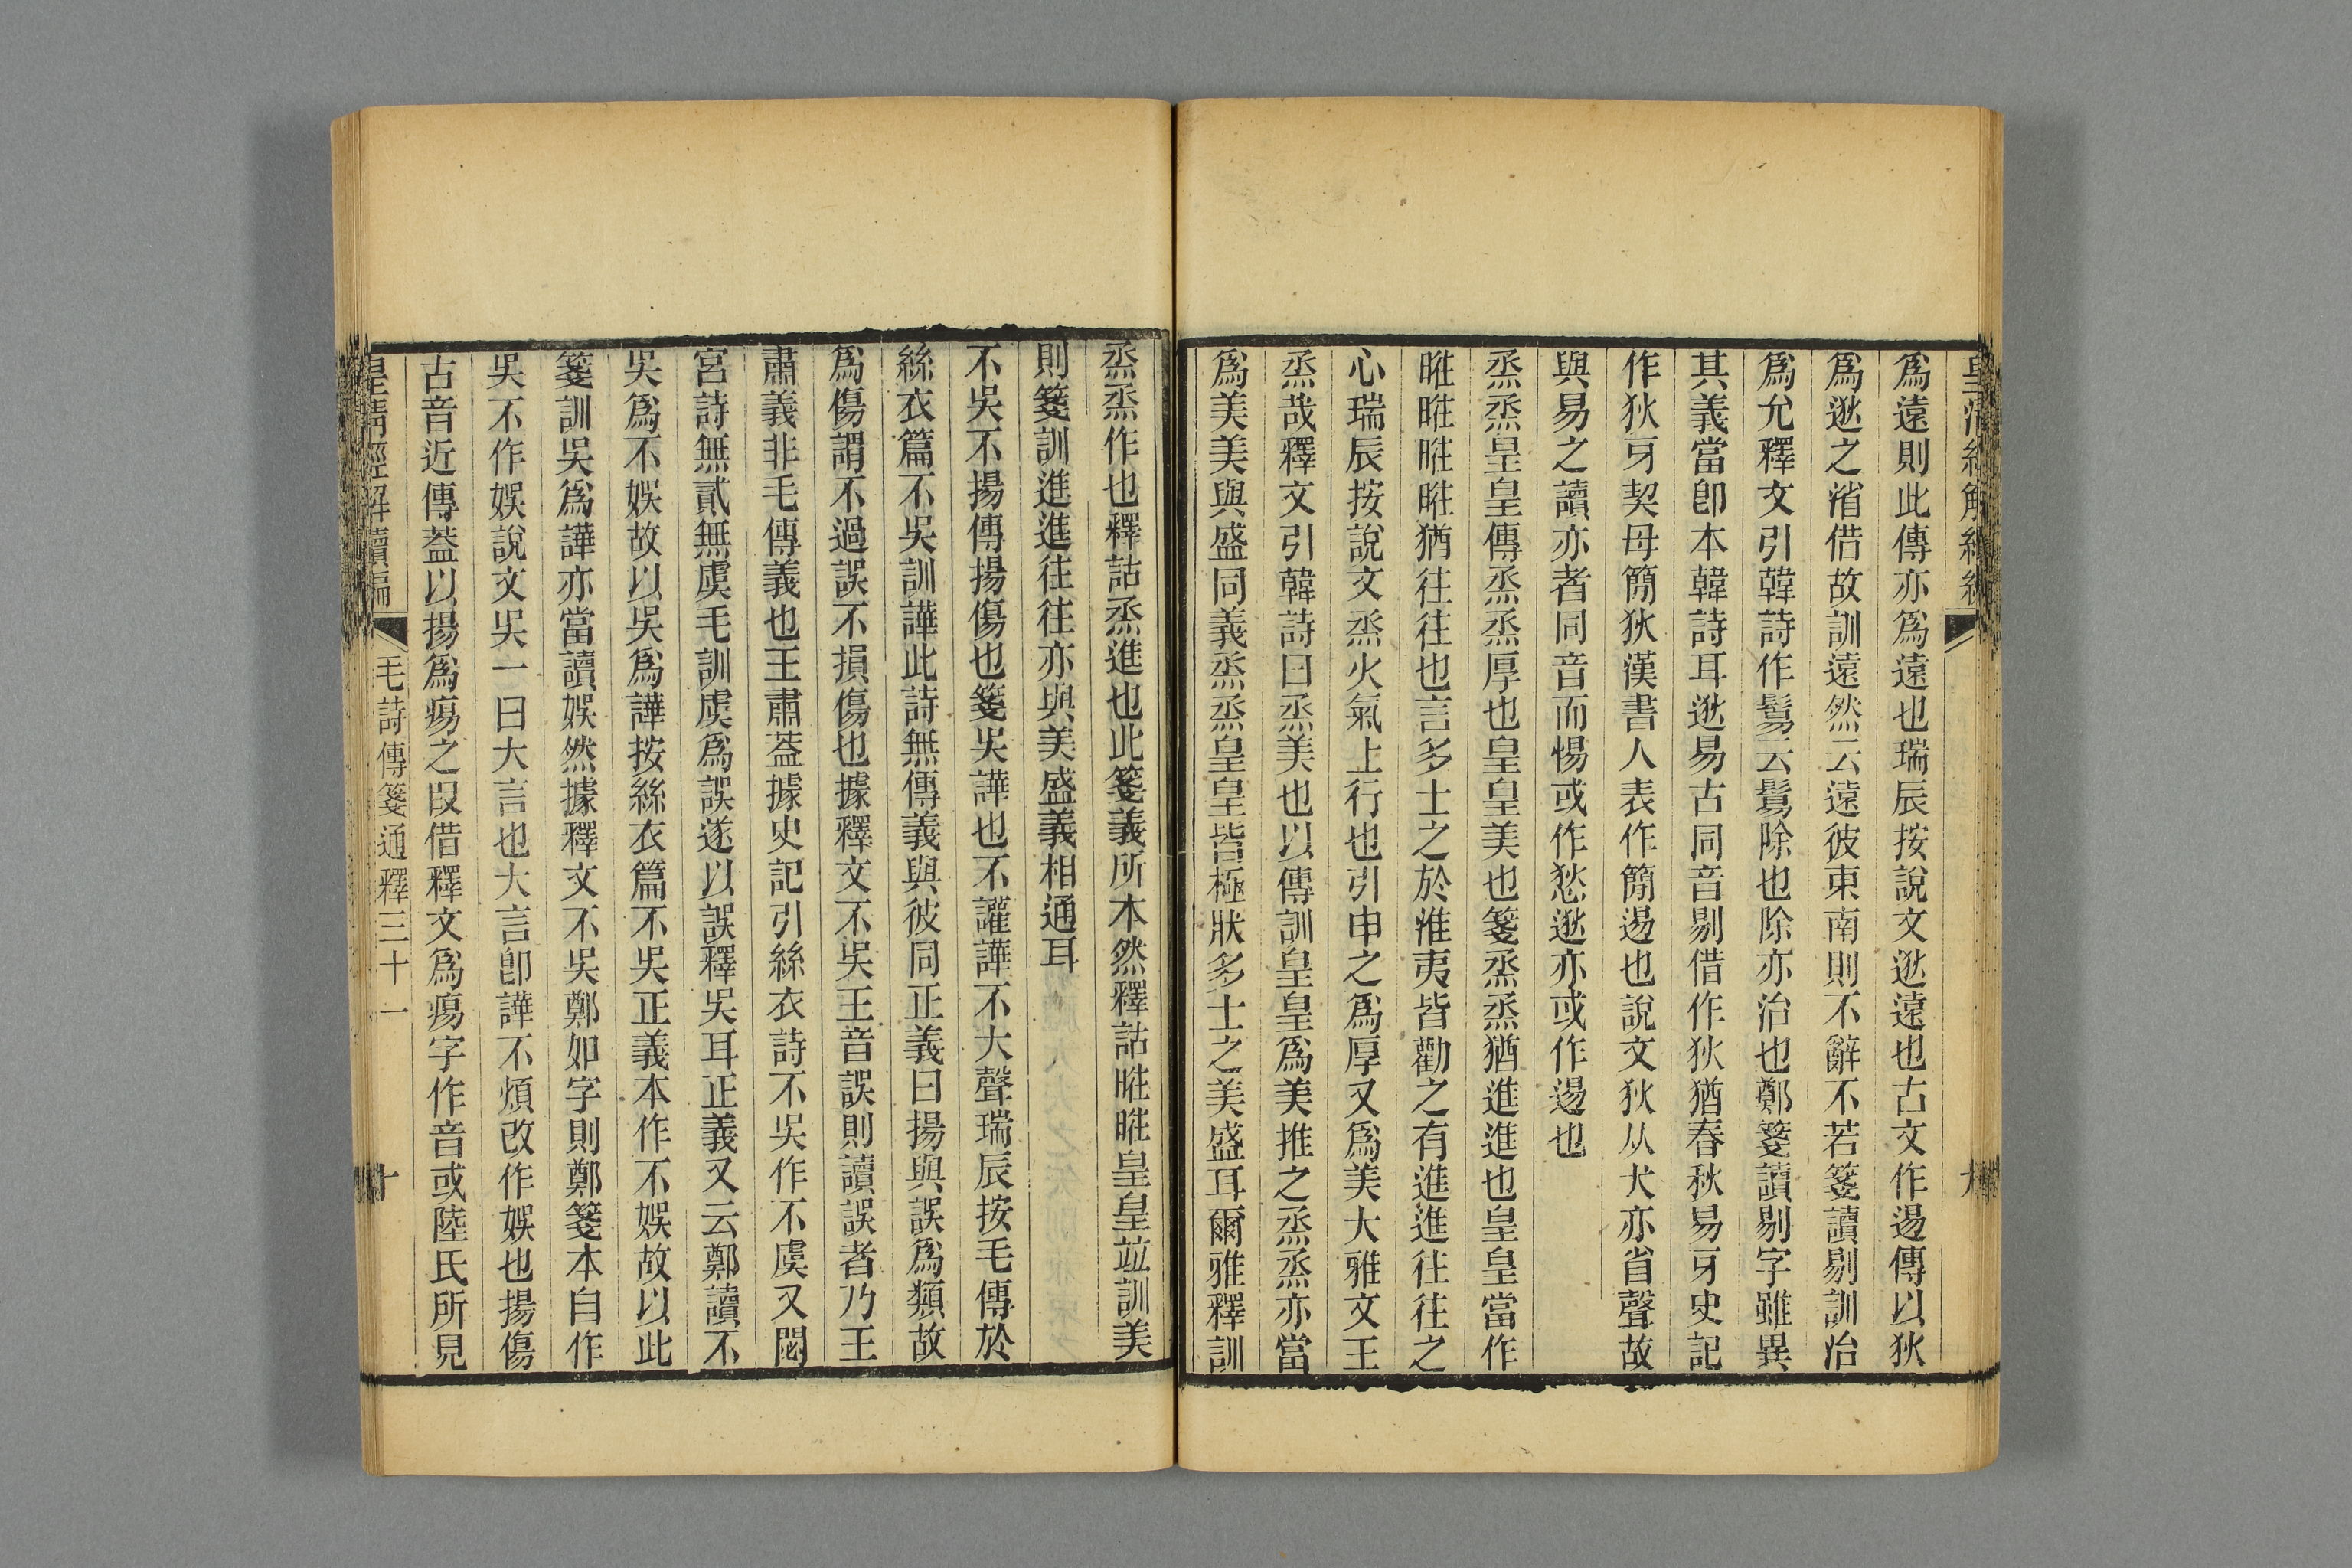 爲遠則此傳亦爲遠也瑞辰按說文逖遠也古文作逷傳以狄
爲逖之渻借故訓遠然云遠彼東南則不辭不若箋讀剔訓治
爲允釋文引韓詩作鬄云鬄除也除亦治也鄭箋讀剔字雖異
其義當卽本韓詩耳逖易古同音剔借作狄猶春秋易牙史記
作狄牙契母簡狄漢書人表作簡逷也說文狄从犬亦省聲故
與易之讀亦者同音而惕或作愁逖亦或作逷也
烝烝皇皇傳烝烝厚也皇皇美也箋烝烝猶進進也皇皇當作
暀暀暀暀猶往往也言多士之於淮夷皆勸之有進進往往之
心瑞辰按說文烝火氣上行也引申之爲厚又爲美大雅文王
烝哉釋文引韓詩曰烝美也以傳訓皇皇爲美推之烝烝亦當
爲美美與盛同義烝烝皇皇皆極狀多士之美盛耳爾雅釋訓
烝烝作也釋詁烝進也此箋義所本然釋詁暀暀皇皇竝訓美
則箋訓進進往往亦與美盛義相通耳
不吳不揚傳揚傷也箋吳譁也不讙譁不大聲瑞辰按毛傳於
絲衣篇不吳訓譁此詩無傳義與彼同正義曰揚與誤爲類故
爲傷謂不過誤不損傷也據釋文不吳王音誤則讀誤者乃王
肅義非毛傳義也王肅葢據史記引絲衣詩不吳作不虞又閟
宮詩無貳無虞毛訓虞爲誤遂以誤釋吳耳正義又云鄭讀不
吳爲不娛故以吳爲譁按絲衣篇不吳正義本作不娛故以此
箋訓吳爲譁亦當讀娛然據釋文不吳鄭如字則鄭箋本自作
吳不作娛說文吳一曰大言也大言卽譁不煩改作娛也揚傷
古音近傳葢以揚爲瘍之叚借釋文爲瘍字作音或陸氏所見
皇清經解續編
毛詩傳箋通釋三十一
十